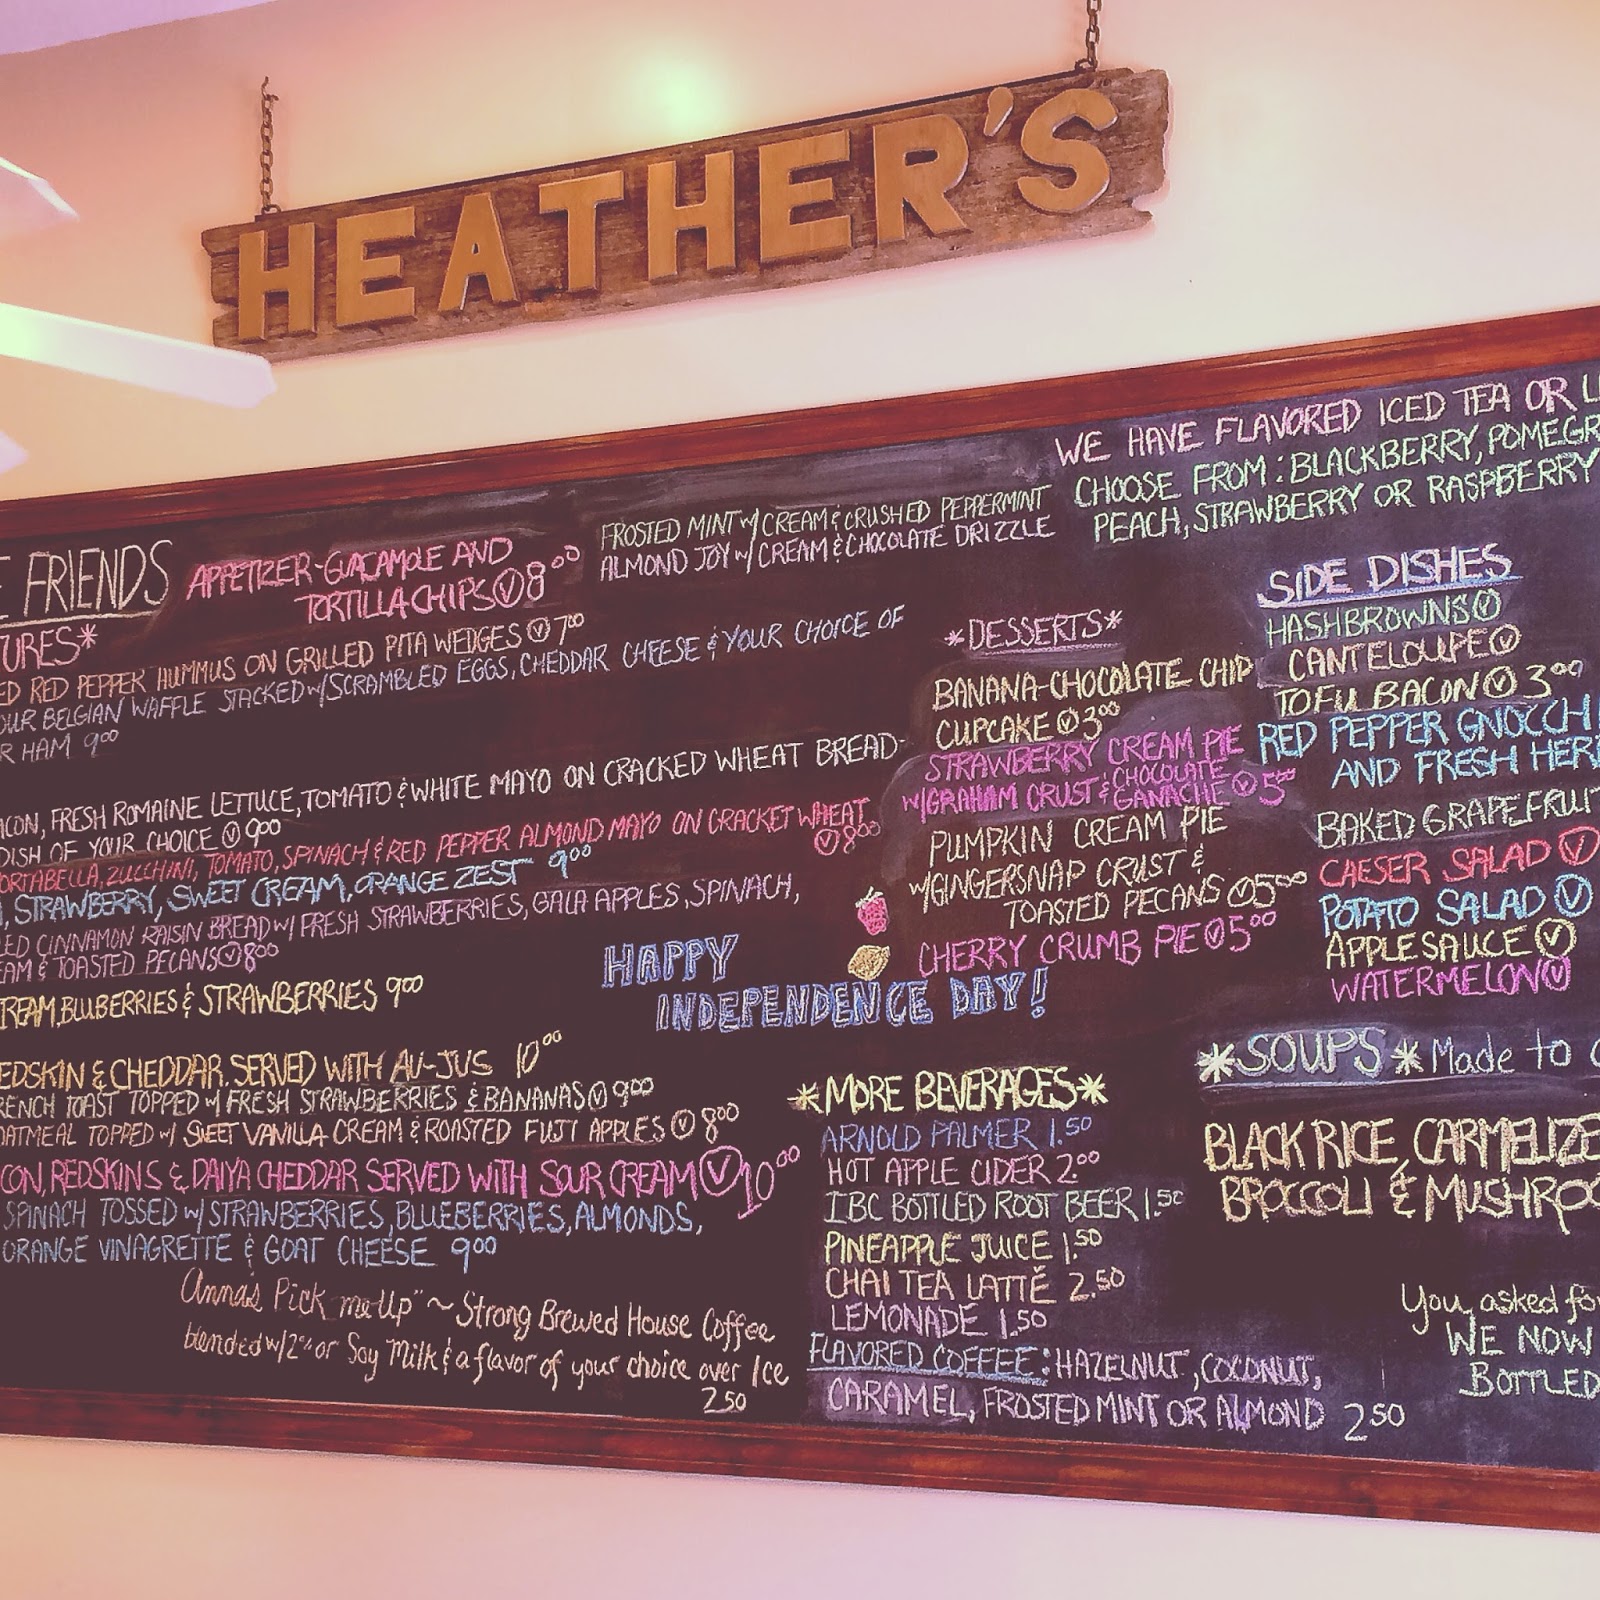 HEATHER'S
WE HAVE FLAVORED ICED TEA OR
CHOOSE FROM: BLACKBERRY,
PEACH, STRAWBERRY OR RASPBERRY
FROSTED MINT w/ CREAM & CRUSHED PEPPERMINT
ALMOND JOY w/ CREAM & CHOCOLATE DRIZZLE
FRIENDS
APPETIZER-GUACAMOLE AND
TORTILLA CHIPS Ⓥ 8⁰⁰
TURES*
ED RED PEPPER HUMMUS ON GRILLED PITA WEDGES Ⓥ 7⁰⁰
OUR BELGIAN WAFFLE STACKED w/ SCRAMBLED EGGS, CHEDDAR CHEESE & YOUR CHOICE OF
R HAM 9⁰⁰
ACON, FRESH ROMAINE LETTUCE, TOMATO & WHITE MAYO ON CRACKED WHEAT BREAD-
DISH OF YOUR CHOICE Ⓥ 9⁰⁰
ORTABELLA, ZUCCHINI, TOMATO, SPINACH & RED PEPPER ALMOND MAYO ON CRACKET WHEAT
Ⓥ 8⁰⁰
STRAWBERRY, SWEET CREAM, ORANGE ZEST 9⁰⁰
LED CINNAMON RAISIN BREAD w/ FRESH STRAWBERRIES, GALA APPLES, SPINACH,
EAM & TOASTED PECANS Ⓥ 8⁰⁰
REAM, BLUBERRIES & STRAWBERRIES 9⁰⁰
EDSKIN & CHEDDAR. SERVED WITH AU-JUS 10⁰⁰
RENCH TOAST TOPPED w/ FRESH STRAWBERRIES & BANANAS Ⓥ 9⁰⁰
OATMEAL TOPPED w/ SWEET VANILLA CREAM & ROASTED FUJI APPLES Ⓥ 8⁰⁰
CON, REDSKINS & DAIYA CHEDDAR SERVED WITH SOUR CREAM Ⓥ 10⁰⁰
SPINACH TOSSED w/ STRAWBERRIES, BLUEBERRIES, ALMONDS,
ORANGE VINAGRETTE & GOAT CHEESE 9⁰⁰
Anna's Pick me-Up" ~ Strong Brewed House Coffee
blended w/ 2% or Soy Milk & a flavor of your choice over Ice
2.50
*DESSERTS*
BANANA-CHOCOLATE CHIP
CUPCAKE Ⓥ 3⁰⁰
STRAWBERRY CREAM PIE
w/ GRAHAM CRUST & CHOCOLATE GANACHE Ⓥ 5⁰⁰
PUMPKIN CREAM PIE
w/ GINGERSNAP CRUST &
TOASTED PECANS Ⓥ 5⁰⁰
CHERRY CRUMB PIE Ⓥ 5⁰⁰
HAPPY
INDEPENDENCE DAY!
*MORE BEVERAGES*
ARNOLD PALMER 1.50
HOT APPLE CIDER 2.⁰⁰
IBC BOTTLED ROOT BEER 1.50
PINEAPPLE JUICE 1.50
CHAI TEA LATTĒ 2.50
LEMONADE 1.50
FLAVORED COFFEE: HAZELNUT, COCONUT,
CARAMEL, FROSTED MINT OR ALMOND 2⁵⁰
SIDE DISHES
HASHBROWNS Ⓥ
CANTELOUPE Ⓥ
TOFU BACON Ⓥ 3⁰⁰
RED PEPPER GNOCCHI
AND FRESH HER
BAKED GRAPEFRUIT
CAESER SALAD Ⓥ
POTATO SALAD Ⓥ
APPLESAUCE Ⓥ
WATERMELON Ⓥ
*SOUPS* Made to
BLACK RICE, CARMELIZE
BROCCOLI & MUSHROO
You asked fo
WE NOW
BOTTLED